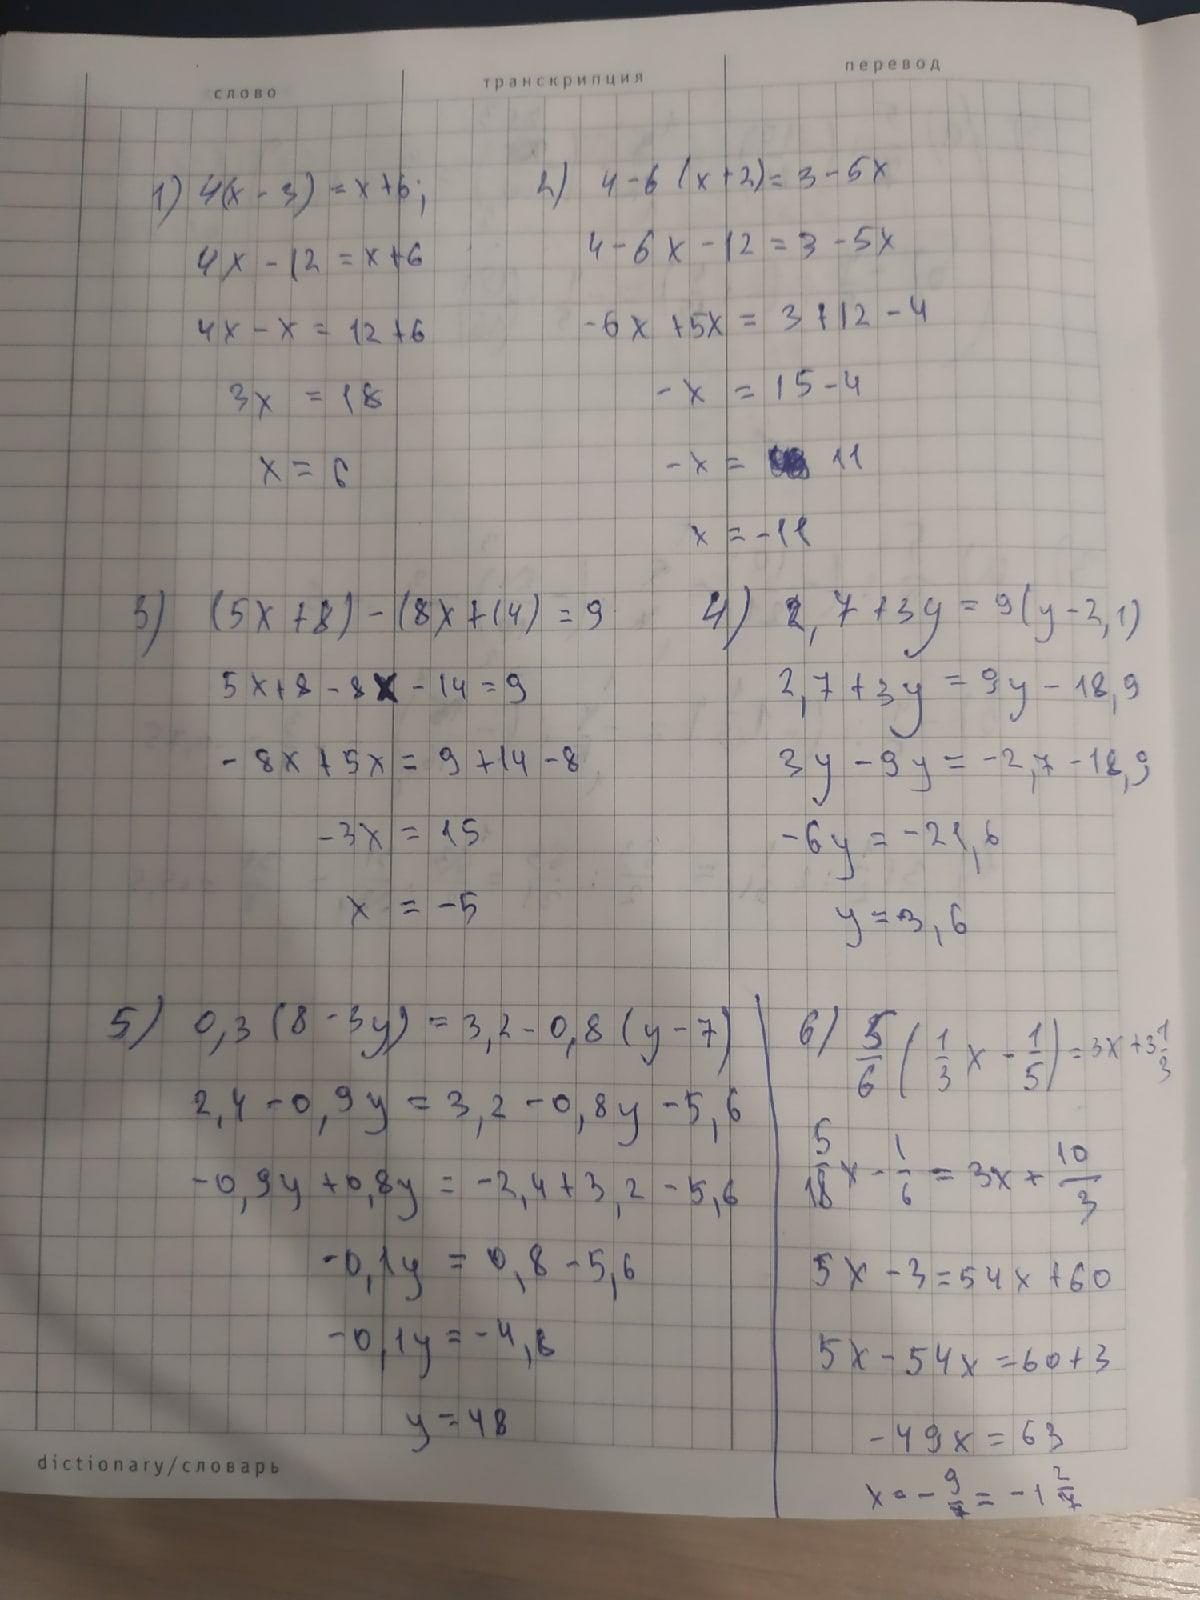 слово транскрипция перевод
1) 4(x - 3) = x + 6;
4x - 12 = x + 6
4x - x = 12 + 6
3x = 18
x = 6
2) 4 - 6 (x + 2) = 3 - 5x
4 - 6x - 12 = 3 - 5x
-6x + 5x = 3 + 12 - 4
-x = 15 - 4
-x = 11
x = -11
3) (5x + 8) - (8x + 14) = 9
5x + 8 - 8x - 14 = 9
- 8x + 5x = 9 + 14 - 8
-3x = 15
x = -5
4) 2,7 + 3y = 9(y - 2,1)
2,7 + 3y = 9y - 18,9
3y - 9y = -2,7 - 18,9
-6y = -21,6
y = 3,6
5) 0,3 (8 - 3y) = 3,2 - 0,8 (y - 7)
2,4 - 0,9y = 3,2 - 0,8y - 5,6
-0,9y + 0,8y = -2,4 + 3,2 - 5,6
-0,1y = 0,8 - 5,6
-0,1y = -4,8
y = 48
6) 5/6 (1/3 x - 1/5) = 3x + 3 1/3
5/18 x - 1/6 = 3x + 10/3
5x - 3 = 54x + 60
5x - 54x = 60 + 3
-49x = 63
x = - 9/7 = -1 2/7
dictionary/словарь